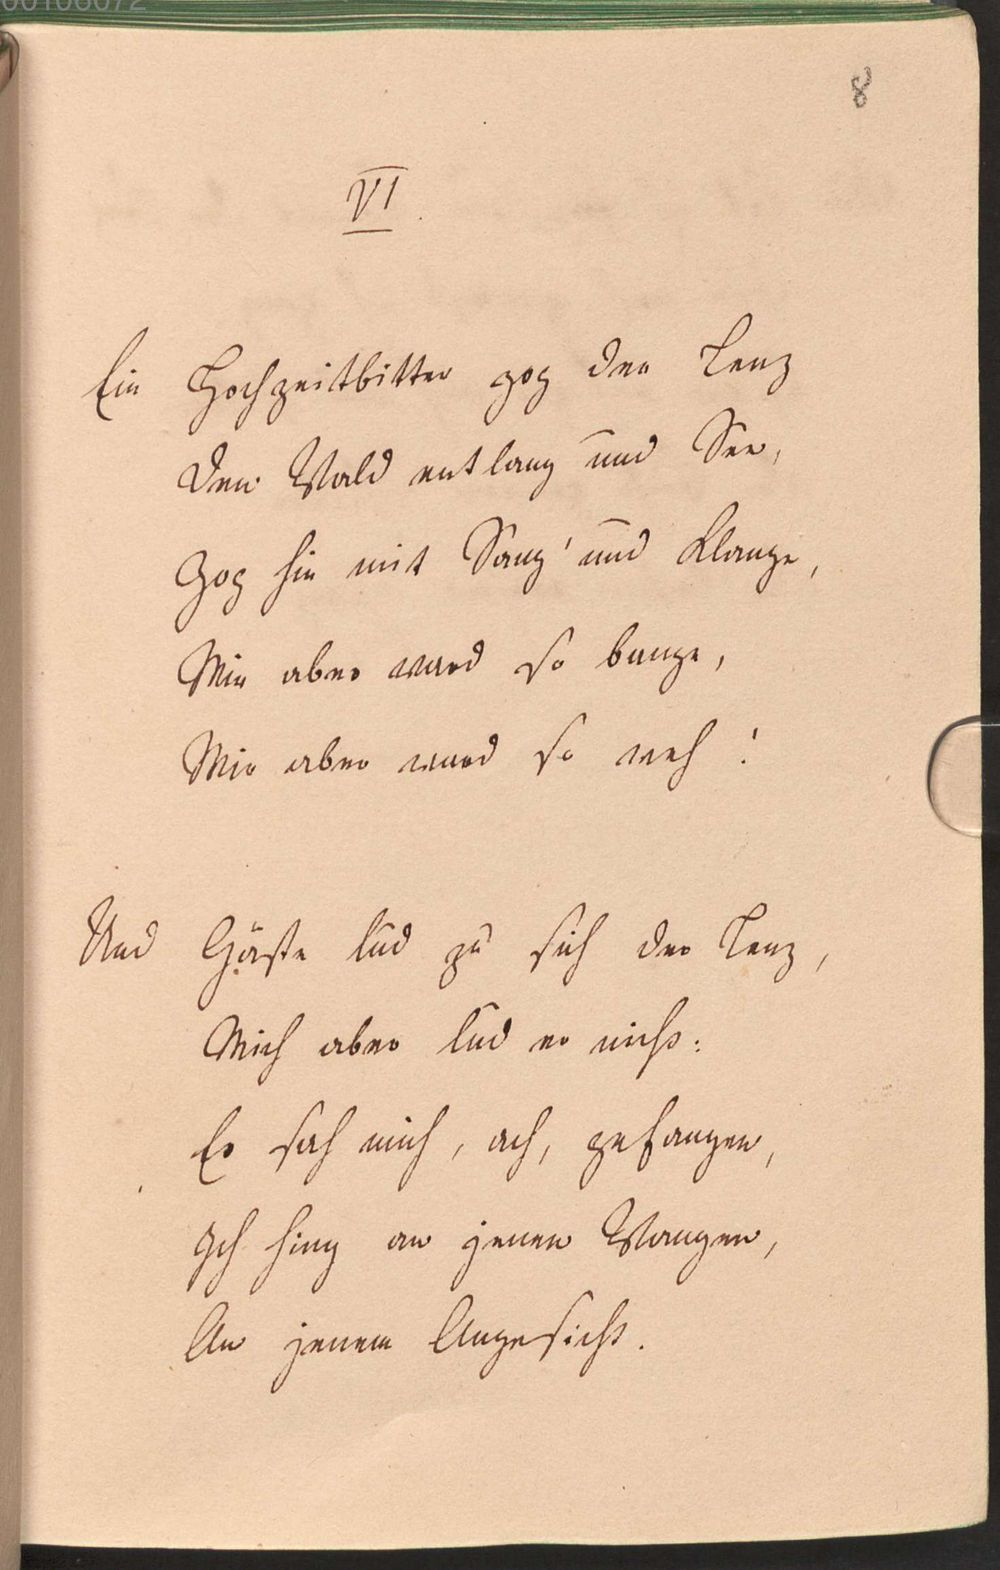 00106072
8
VI.
Ein Hochzeitbitter zog der Lenz
Den Wald entlang und See,
Zog hin mit Sang' und Klange,
Mir aber ward so bange,
Mir aber ward so weh!
Und Gäste lud zu sich der Lenz,
Mich aber lud er nicht:
Er sah mich, ach, gefangen,
Ich hing an jenen Wangen,
An jenem Angesicht.